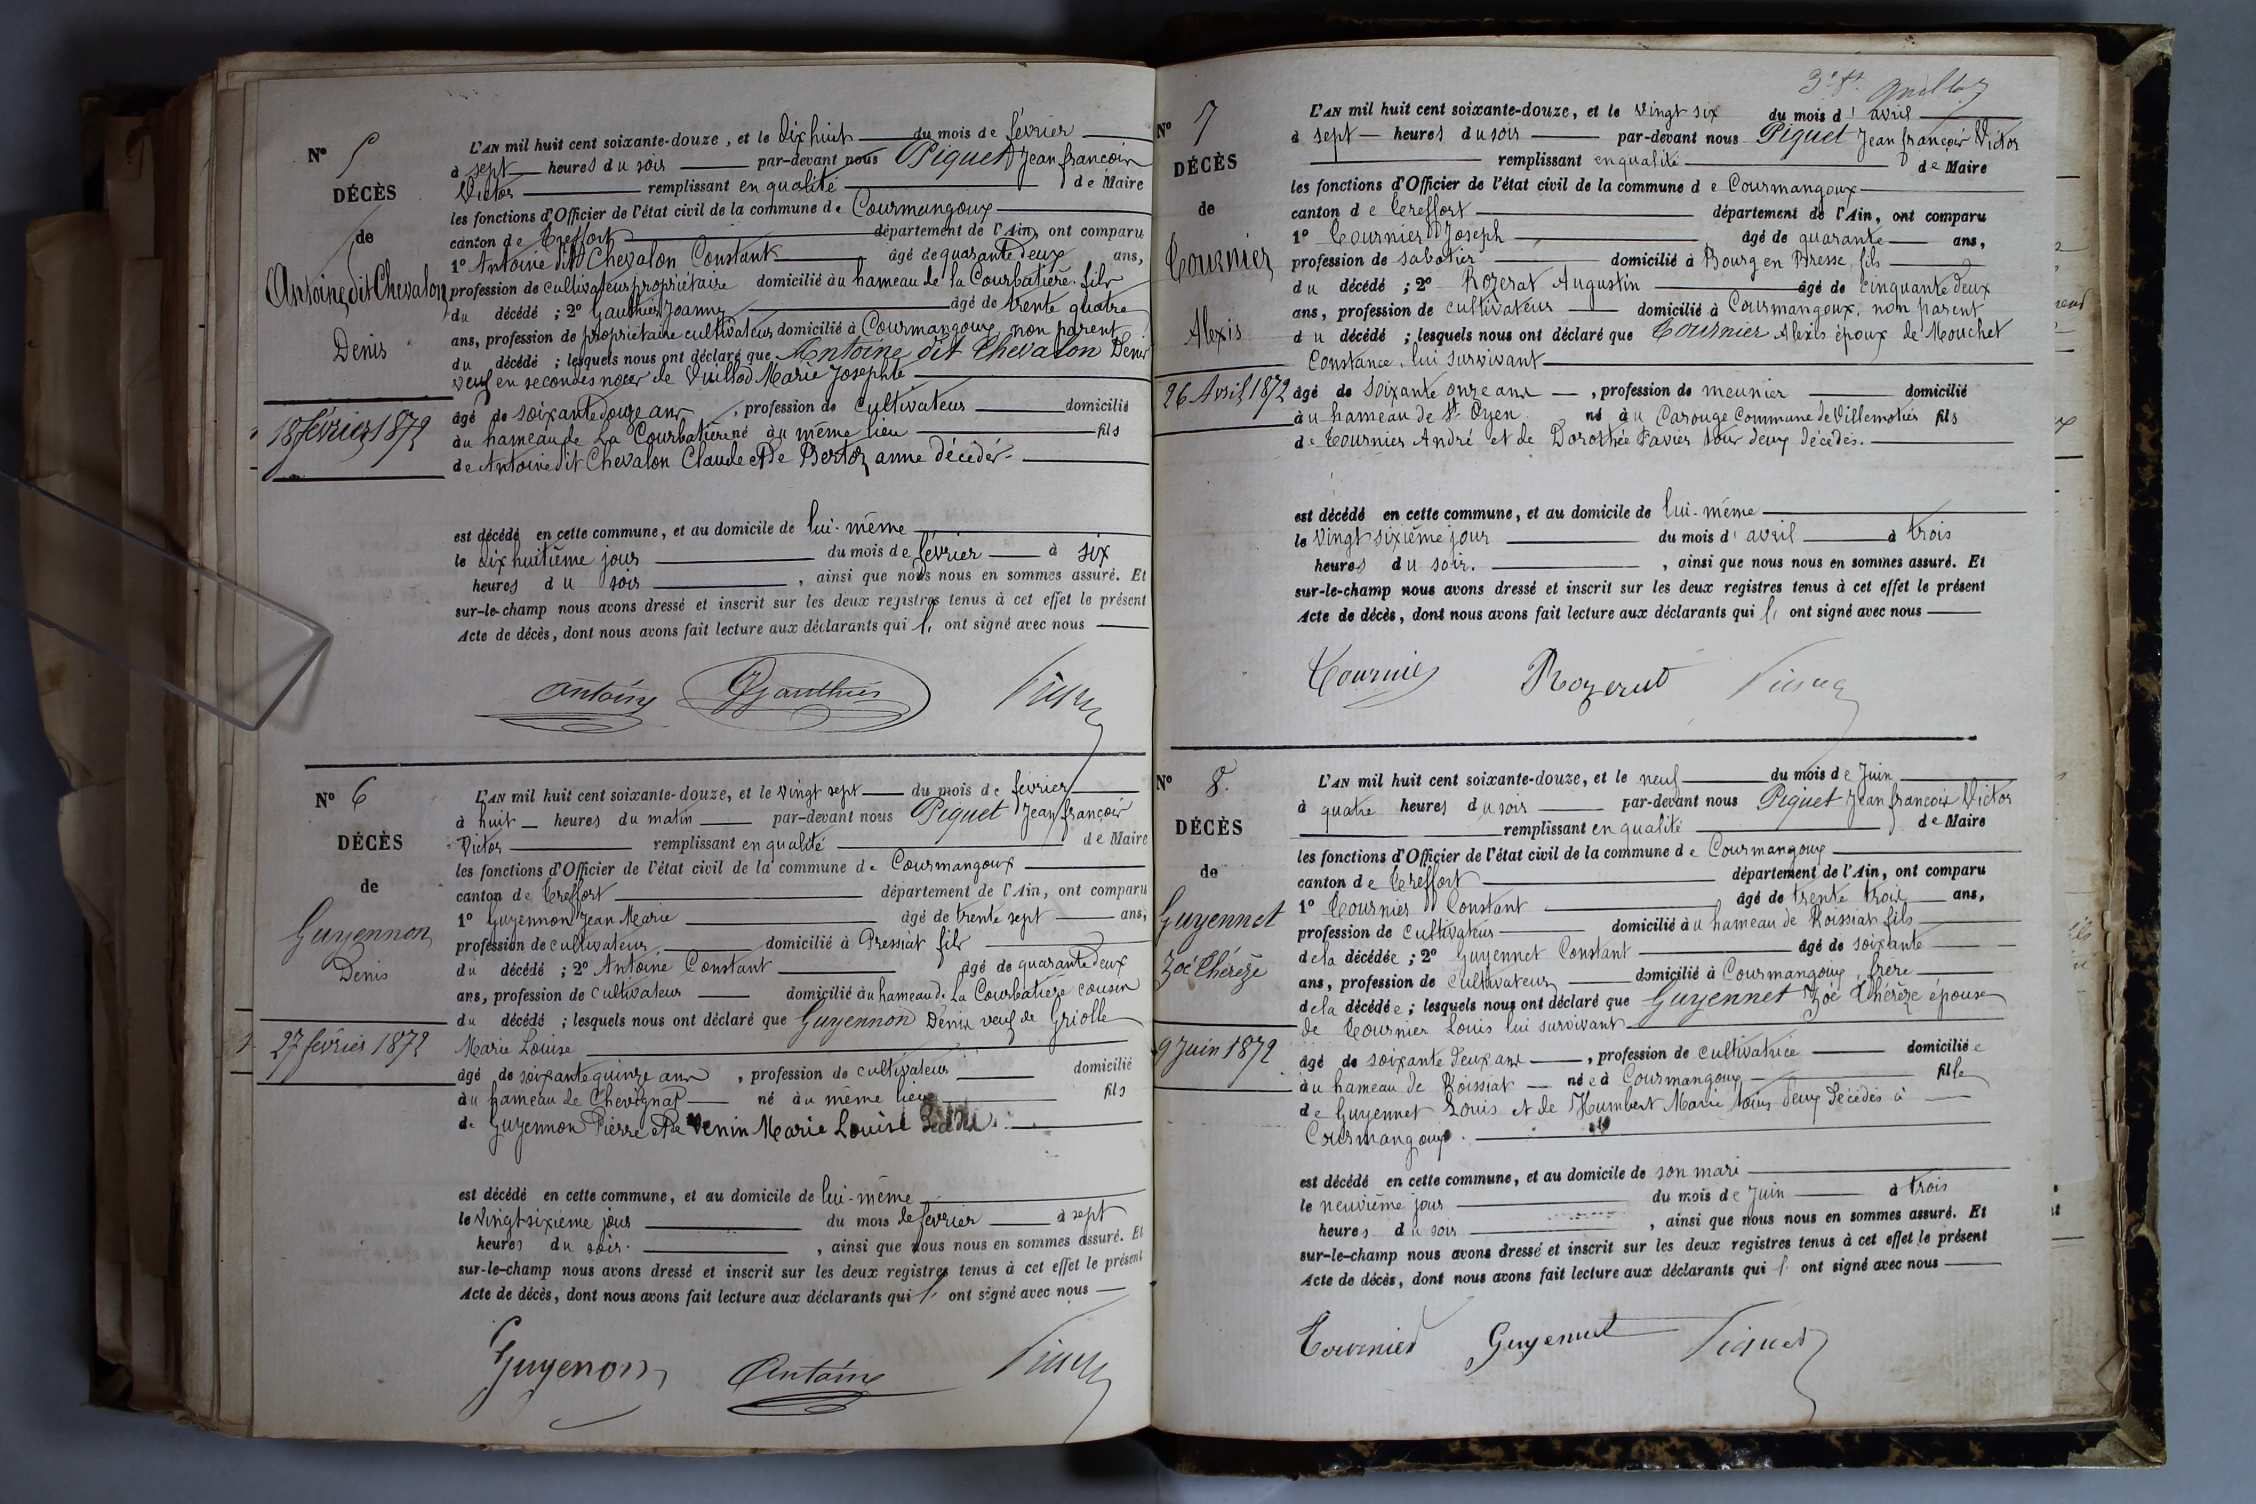 N° 5
DÉCÈS
de
Antoine dit Chevalon
Denis
18 février 1872
L'AN mil huit cent soixante-douze, et le dix huit du mois de février
à sept heures du soir par-devant nous Piquet Jean françois
Victor remplissant en qualité de Maire
les fonctions d'Officier de l'état civil de la commune de Courmangoux
canton de Treffort département de l'Ain, ont comparu
1° Antoine dit Chevalon Constant âgé de quarante deux ans,
profession de cultivateur propriétaire domicilié au hameau de la Courbatière fils
du décédé ; 2° Gauthier Joanny âgé de trente quatre
ans, profession de propriétaire cultivateur domicilié à Courmangoux non parent
du décédé ; lesquels nous ont déclaré que Antoine dit Chevalon Denis
veuf en secondes noces de Vuillod Marie Josephte
âgé de soixante douze ans, profession de cultivateur domicilié
au hameau de La Courbatière né au même lieu fils
de Antoine dit Chevalon Claude et de Bertoz anne décédés.
est décédé en cette commune, et au domicile de lui-même
le dix huitième jour du mois de février à six
heures du soir, ainsi que nous nous en sommes assuré. Et
sur-le-champ nous avons dressé et inscrit sur les deux registres tenus à cet effet le présent
Acte de décès, dont nous avons fait lecture aux déclarants qui l' ont signé avec nous
Antoine Gauthier Piquet
N° 6
DÉCÈS
de
Guyennon
Denis
27 février 1872
L'AN mil huit cent soixante-douze, et le vingt sept du mois de février
à huit heures du matin par-devant nous Piquet Jean françois
Victor remplissant en qualité de Maire
les fonctions d'Officier de l'état civil de la commune de Courmangoux
canton de Treffort département de l'Ain, ont comparu
1° Guyennon Jean Marie âgé de trente sept ans,
profession de cultivateur domicilié à Pressiat fils
du décédé ; 2° Antoine Constant âgé de quarante deux
ans, profession de cultivateur domicilié au hameau de La Courbatière cousin
du décédé ; lesquels nous ont déclaré que Guyennon Denis veuf de Griolle
Marie Louise
âgé de soixante quinze ans, profession de cultivateur domicilié
au hameau de Chevignat né au même lieu fils
de Guyennon Pierre et de Venin Marie Louise
est décédé en cette commune, et au domicile de lui-même
le vingt sixième jour du mois de février à sept
heures du soir., ainsi que nous nous en sommes assuré. Et
sur-le-champ nous avons dressé et inscrit sur les deux registres tenus à cet effet le présent
Acte de décès, dont nous avons fait lecture aux déclarants qui l' ont signé avec nous
Guyenon Antoine Piquet
N° 7
DÉCÈS
de
Tournier
Alexis
26 Avril 1872
L'AN mil huit cent soixante-douze, et le vingt six du mois d'avril
à sept heures du soir par-devant nous Piquet Jean françois Victor
remplissant en qualité de Maire
les fonctions d'Officier de l'état civil de la commune de Courmangoux
canton de Treffort département de l'Ain, ont comparu
1° Tournier Joseph âgé de quarante ans,
profession de sabotier domicilié à Bourg en Bresse, fils
du décédé ; 2° Rozerat Augustin âgé de cinquante deux
ans, profession de cultivateur domicilié à Courmangoux, non parent
du décédé ; lesquels nous ont déclaré que Tournier Alexis époux de Mouchet
Constance, lui survivant
âgé de soixante onze ans, profession de meunier domicilié
au hameau de St Oyen né au Carouge Commune de Villemotier fils
de Tournier André et de Dorothée Favier tous deux décédés.
est décédé en cette commune, et au domicile de lui-même
le vingt sixième jour du mois d'avril à trois
heures du soir., ainsi que nous nous en sommes assuré. Et
sur-le-champ nous avons dressé et inscrit sur les deux registres tenus à cet effet le présent
Acte de décès, dont nous avons fait lecture aux déclarants qui l' ont signé avec nous
Tournier Rozerat Piquet
N° 8.
DÉCÈS
de
Guyennet
Zoé Thérèze
9 Juin 1872
L'AN mil huit cent soixante-douze, et le neuf du mois de Juin
à quatre heures du soir par-devant nous Piquet Jean françois Victor
remplissant en qualité de Maire
les fonctions d'Officier de l'état civil de la commune de Courmangoux
canton de Treffort département de l'Ain, ont comparu
1° Tournier Constant âgé de trente trois ans,
profession de cultivateur domicilié au hameau de Roissiat fils
de la décédée ; 2° Guyennet Constant âgé de soixante
ans, profession de cultivateur domicilié à Courmangoux, frère
de la décédée ; lesquels nous ont déclaré que Guyennet Zoé Thérèze épouse
de Tournier Louis lui survivant
âgé de soixante deux ans, profession de cultivatrice domiciliée
au hameau de Roissiat née à Courmangoux fille
de Guyennet Louis et de Humbert Marie tous deux décédés à
Courmangoux.
est décédé en cette commune, et au domicile de son mari
le neuvième jour du mois de Juin à trois
heures du soir, ainsi que nous nous en sommes assuré. Et
sur-le-champ nous avons dressé et inscrit sur les deux registres tenus à cet effet le présent
Acte de décès, dont nous avons fait lecture aux déclarants qui l' ont signé avec nous
Tournier Guyennet Piquet